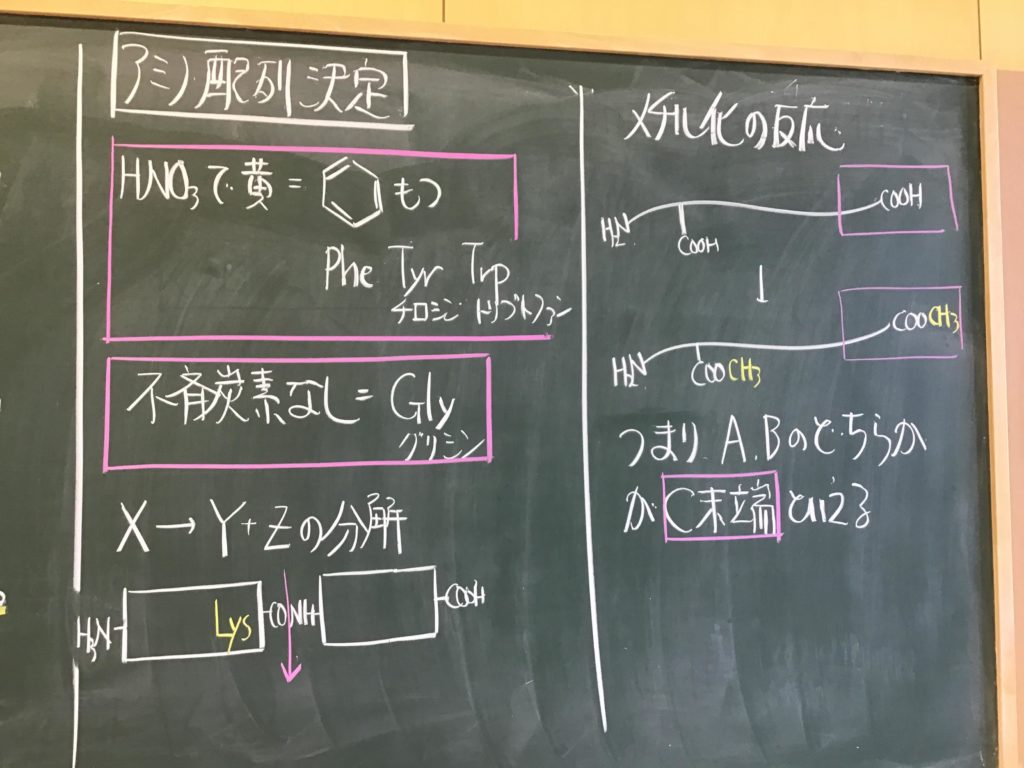 アミノ配列決定
HNO₃で黄 = もつ
Phe Tyr Trp
チロシン トリプトファン
不斉炭素なし = Gly
グリシン
X → Y + Zの分解
H₂N Lys CONH COOH
メチル化の反応
H₂N COOH COOH
↓
H₂N COOCH₃ COOCH₃
つまり A, Bのどちらか
が C末端 といえる